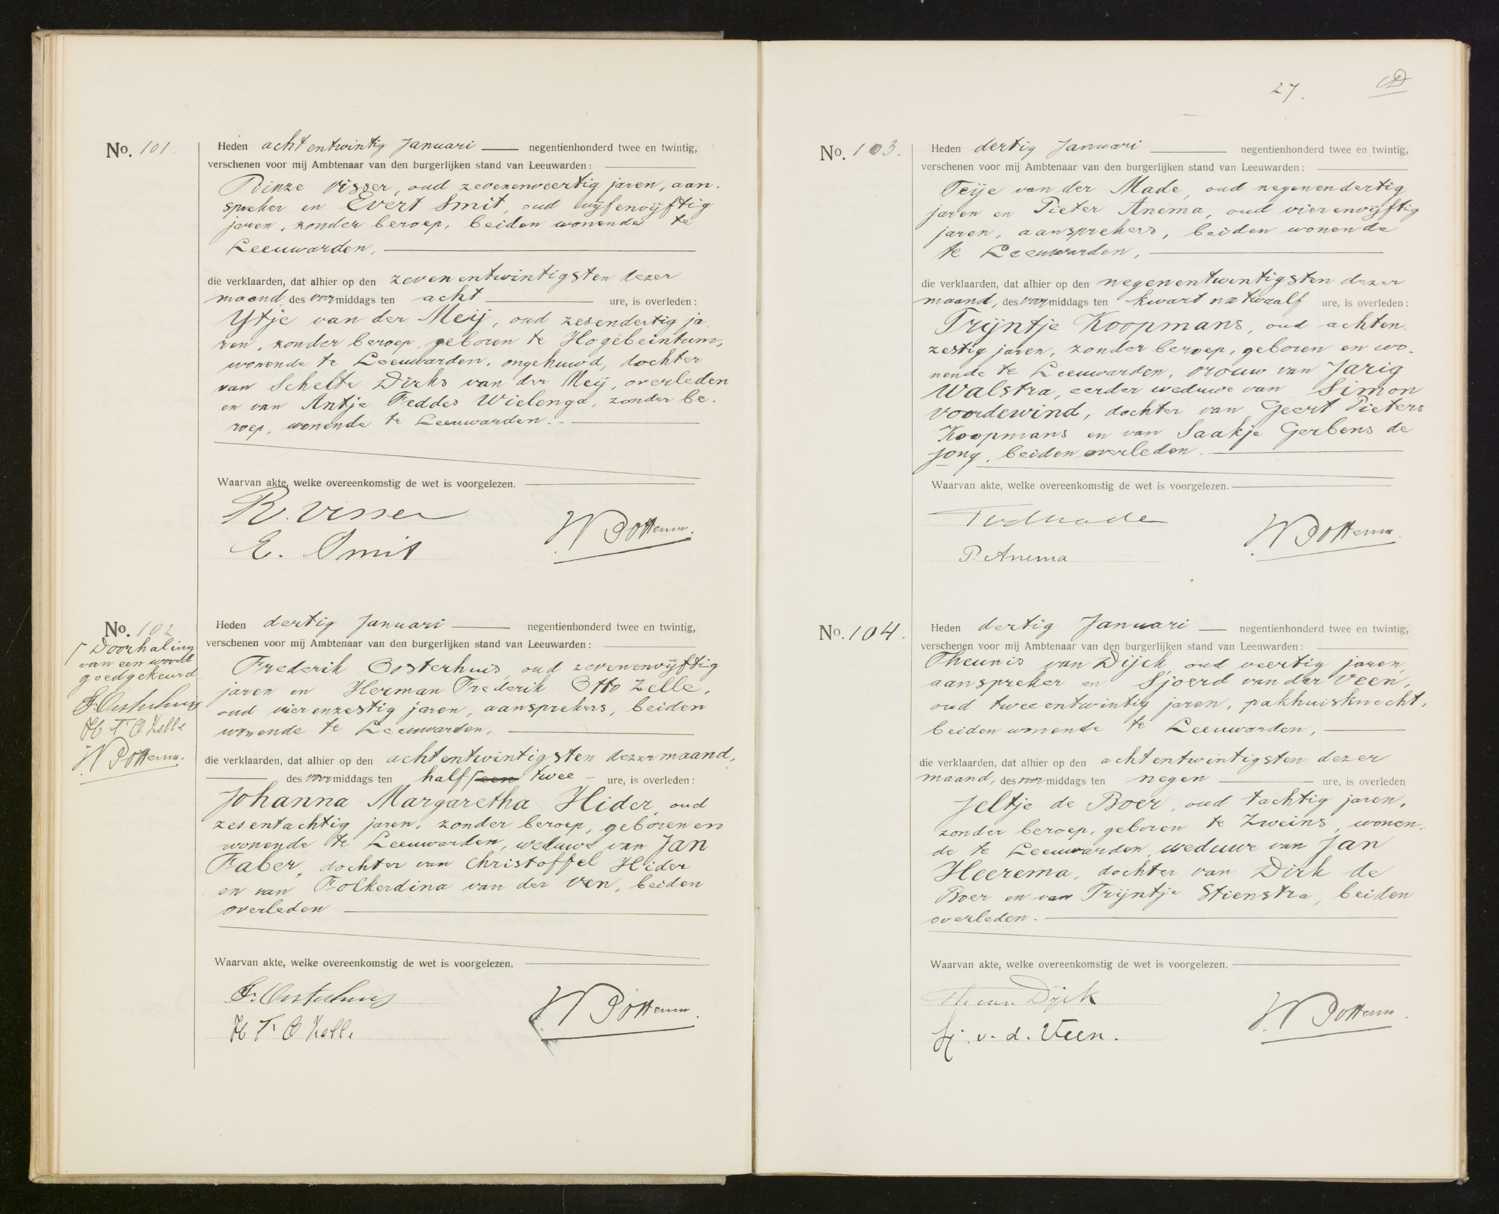 No. 101.
Heden achtentwintig Januari negentienhonderd twee en twintig,
verschenen voor mij Ambtenaar van den burgerlijken stand van Leeuwarden:
Rinze Visser, oud zevenenveertig jaren, aan-
spreker en Evert Smit, oud vijfenvijftig
jaren, zonder beroep, beiden wonende te
Leeuwarden,
die verklaarden, dat alhier op den zevenentwintigsten dezer
maand, des voormiddags ten acht ure, is overleden:
Ytje van der Meij, oud zesendertig ja-
ren, zonder beroep, geboren te Hogebeintum,
wonende te Leeuwarden, ongehuwd, dochter
van Schelte Dirks van der Meij, overleden
en van Antje Feddes Wielenga, zonder be-
roep, wonende te Leeuwarden.
Waarvan akte, welke overeenkomstig de wet is voorgelezen.
R. Visser
E. Smit
No. 102
Doorhaling
van een woord
goedgekeurd
F. Oosterhuis
H F O Zelle
Heden dertig Januari negentienhonderd twee en twintig,
verschenen voor mij Ambtenaar van den burgerlijken stand van Leeuwarden:
Frederik Oosterhuis, oud zevenenvijftig
jaren en Herman Frederik Otto Zelle,
oud vierenzestig jaren, aansprekers, beiden
wonende te Leeuwarden,
die verklaarden, dat alhier op den achtentwintigsten dezer maand,
des voormiddags ten half een twee ure, is overleden:
Johanna Margaretha Hider, oud
zesentachtig jaren, zonder beroep, geboren en
wonende te Leeuwarden, weduwe van Jan
Faber, dochter van Christoffel Hider
en van Folkerdina van der Ven, beiden
overleden
Waarvan akte, welke overeenkomstig de wet is voorgelezen.
F. Oosterhuis
H F O Zelle
27.
No. 103.
Heden dertig Januari negentienhonderd twee en twintig,
verschenen voor mij Ambtenaar van den burgerlijken stand van Leeuwarden:
Feije van der Made, oud negenendertig
jaren en Pieter Anema, oud vierenvijftig
jaren, aansprekers, beiden wonende
te Leeuwarden,
die verklaarden, dat alhier op den negenentwintigsten dezer
maand, des voormiddags ten kwart na twaalf ure, is overleden:
Trijntje Koopmans, oud achten-
zestig jaren, zonder beroep, geboren en wo-
nende te Leeuwarden, vrouw van Jarig
Walstra, eerder weduwe van Simon
Voordewind, dochter van Geert Pieters
Koopmans en van Saakje Gerbens de
Jong, beiden overleden.
Waarvan akte, welke overeenkomstig de wet is voorgelezen.
P. Anema
No. 104.
Heden dertig Januari negentienhonderd twee en twintig,
verschenen voor mij Ambtenaar van den burgerlijken stand van Leeuwarden:
Theunis van Dijck, oud veertig jaren,
aanspreker en Sjoerd van der Veen,
oud tweeentwintig jaren, pakhuisknecht,
beiden wonende te Leeuwarden,
die verklaarden, dat alhier op den achtentwintigsten dezer
maand, des voormiddags ten negen ure, is overleden
Jeltje de Boer, oud tachtig jaren,
zonder beroep, geboren te Zweins, wonen-
de te Leeuwarden, weduwe van Jan
Heerema, dochter van Dirk de
Boer en van Trijntje Stienstra, beiden
overleden.
Waarvan akte, welke overeenkomstig de wet is voorgelezen.
Th van Dijck
Sj. v. d. Veen.